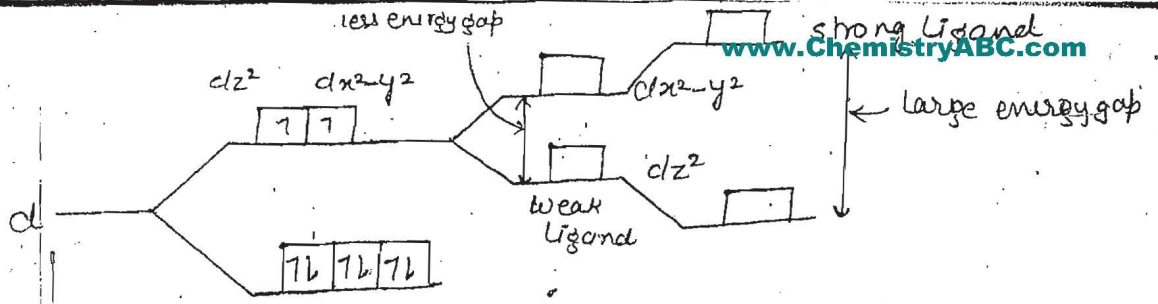 less energy gap
strong Ligand
www.ChemistryABC.com
dz² dx²-y²
dx²-y²
Large energy gap
1 1
dz²
d
weak
Ligand
1L 1L 1L